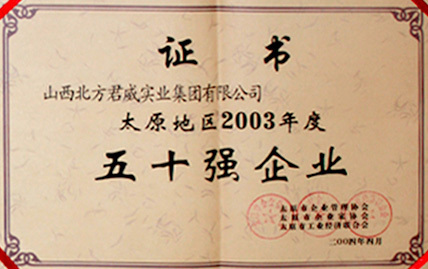 证书
山西北方君威实业集团有限公司
太原地区2003年度
五十强企业
太原市企业管理协会
太原市企业家协会
太原市工业经济联合会
二〇〇四年四月